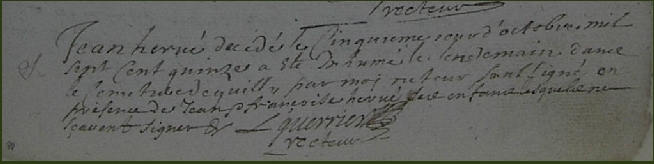 recteur
Jean hervé decédé le Cinquieme jour d'octobre mil
sept Cent quinze a Eté Inhumé le lendemain dans
le semetiere de quilly par moy recteur soussigné en
présence de Jean & françoise hervé ses enfans lesquels ne
sçavent signer & L guerrier
recteur